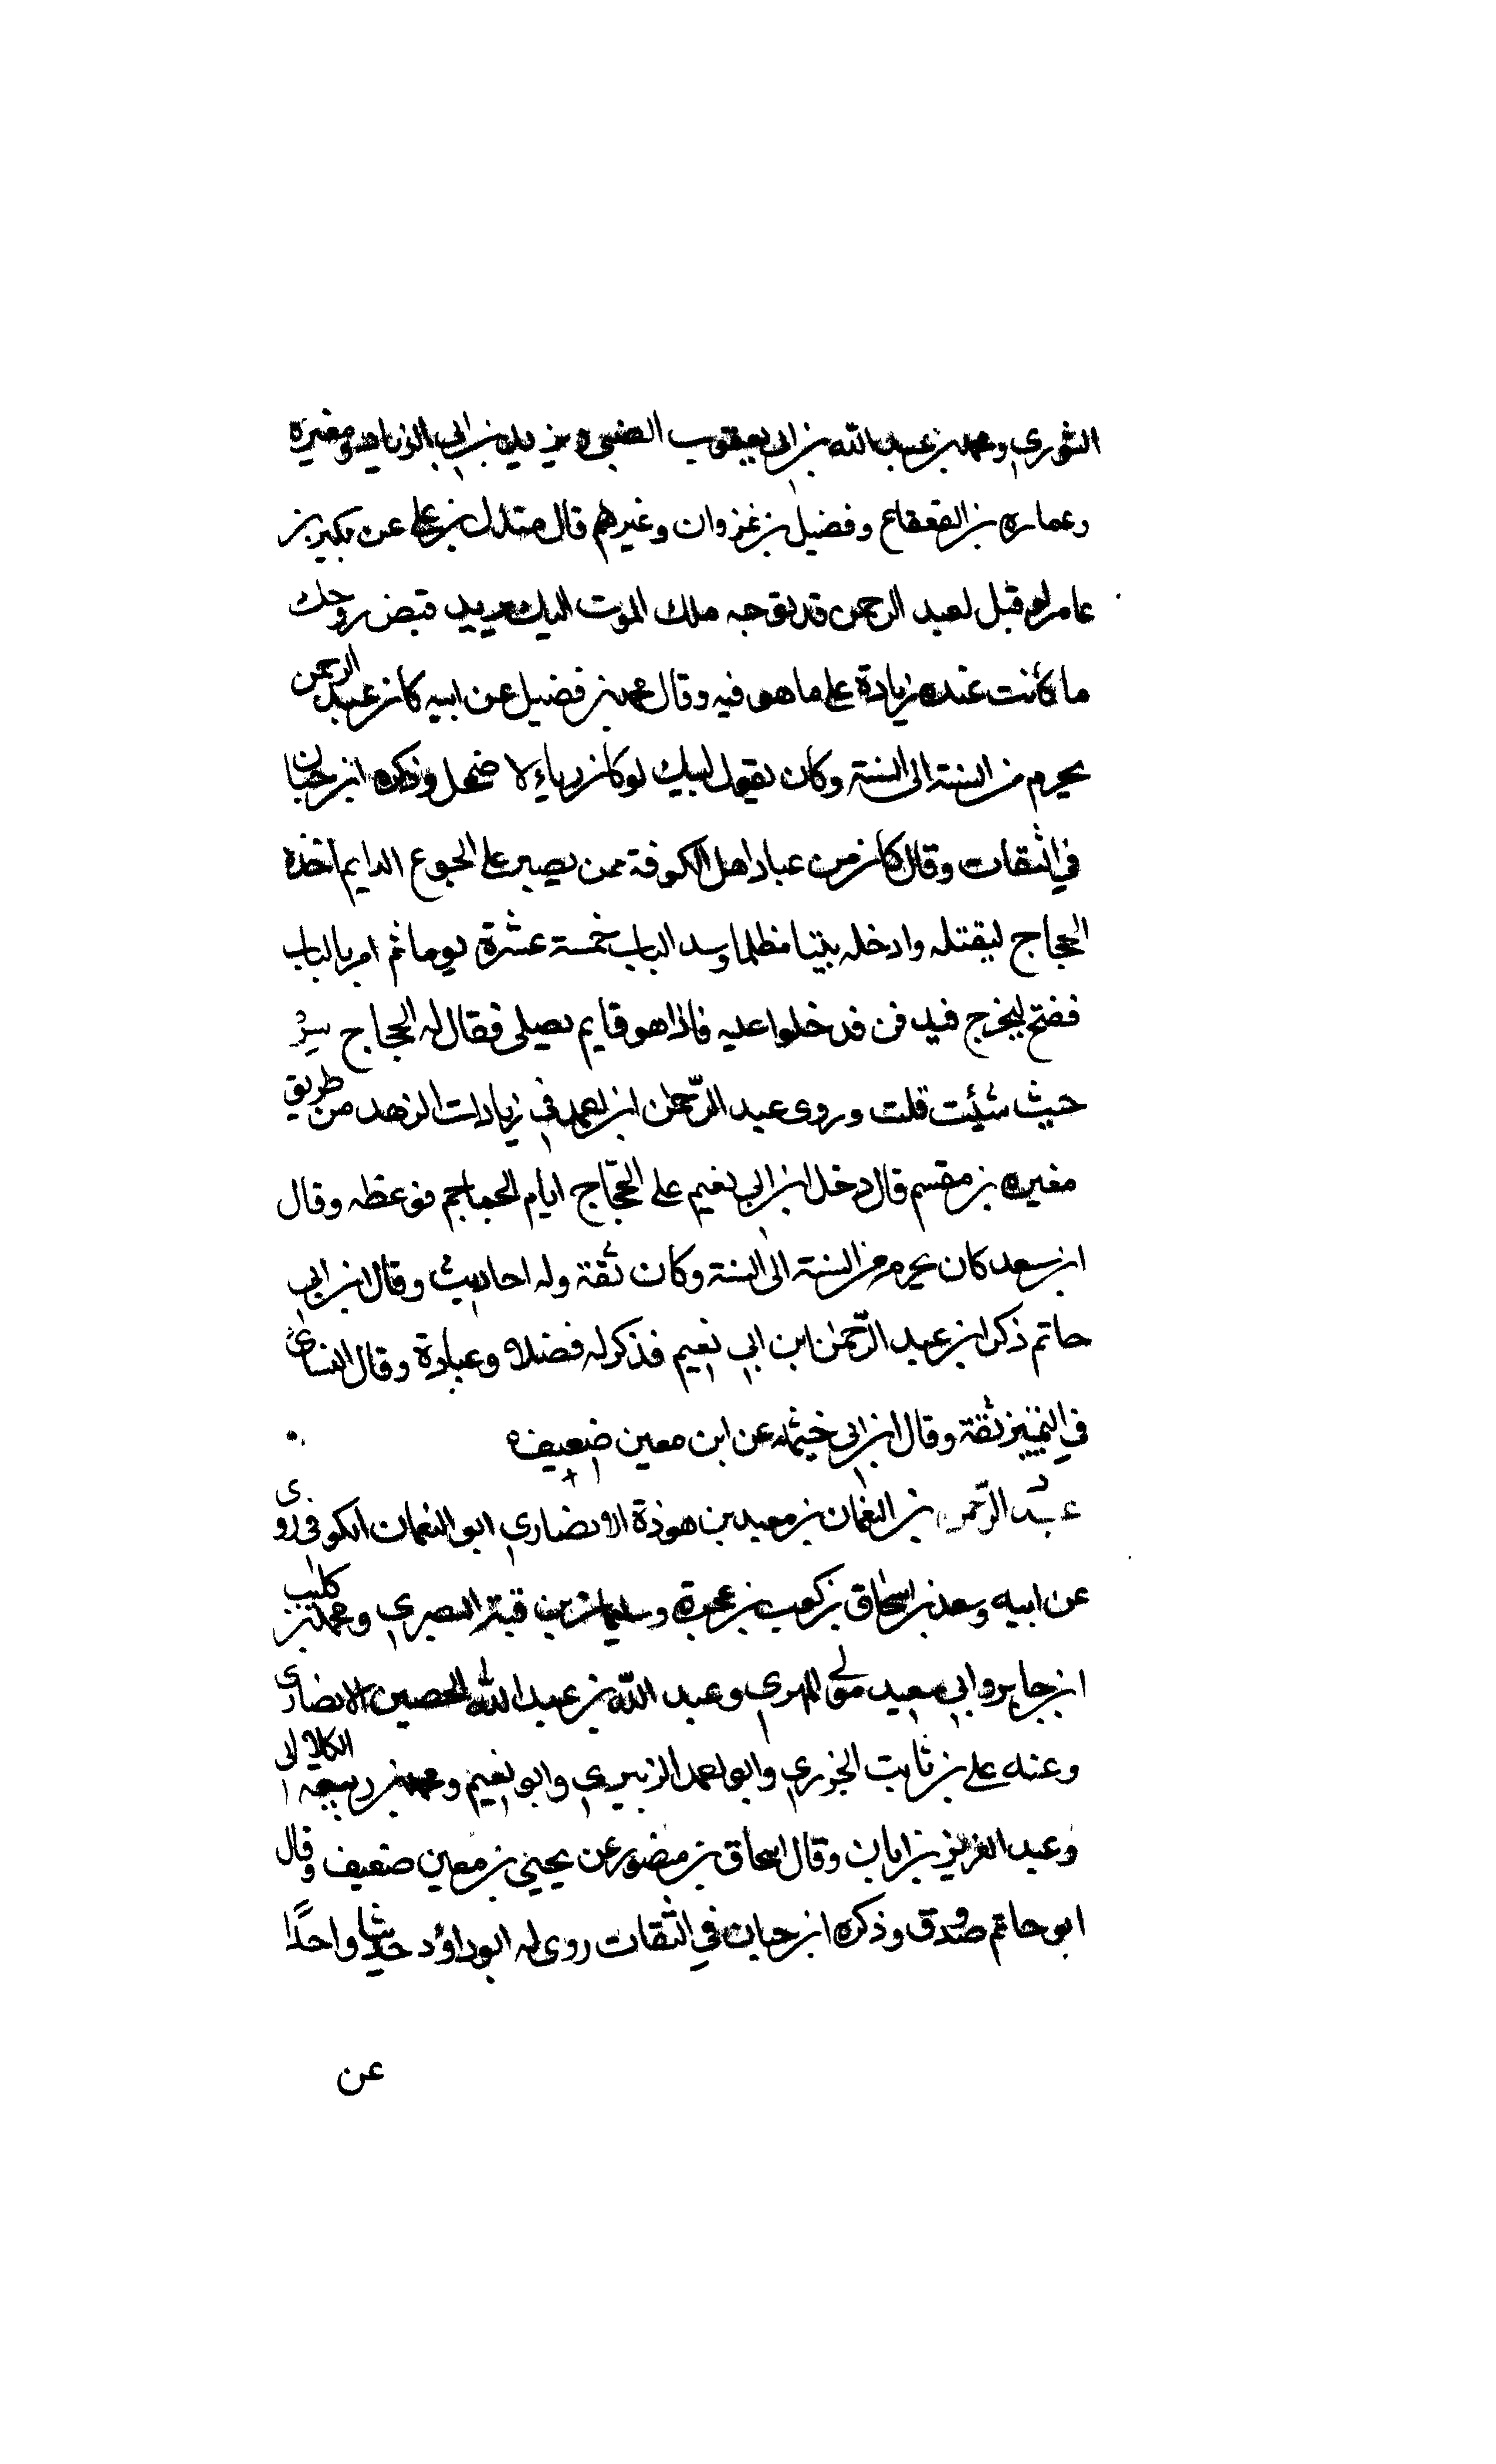 الثوري ومحمد بن عبد الله بن ابي يعقوب الضبي ويزيد بن ابي الزناد ومغيرة
وعماره بن القعقاع وفضيل بن غزوان وغيرهم قال مندل بن علي عن بكير بن
عامر لو قيل لعبد الرحمن قد توجه ملك الموت اليك يريد قبض روحك
ما كانت عنده زيادة على ما هو فيه وقال محمد بن فضيل عن ابيه كان عبد الرحمن
يحرم من السنة الى السنة وكان يقول لبيك لو كان رياء لاضمحل وذكره ابن حبان
في الثقات وقال كان من عباد اهل الكوفة ممن يصبر على الجوع الدايم اخذه
الحجاج ليقتله وادخله بيتا مظلما وسد الباب خمسة عشرة يوما ثم امر بالباب
ففتح ليخرج فيدفن فدخلوا عليه فاذا هو قايم يصلي فقال له الحجاج سِرْ
حيث شئت قلت وروى عبد الرحمن ابن احمد في زيادات الزهد من طريق
مغيره بن مقسم قال دخل ابن ابي نعيم على الحجّاج ايام الجماجم فوعظه وقال
ابن سعد كان يحرم من السنة الى السنة وكان ثقة وله احاديث وقال ابن ابي
حاتم ذكر ابن عبد الرّحمن ابن ابي نعيم فذكر له فضلا وعبادة وقال النساي
في التمييز ثقة وقال ابن ابي خيثمه عن ابن معين ضعيف ه
عبد الرّحمن بن النعمان بن معبد بن هوذة الانصاري ابو النعمان الكوفي روى
عن ابيه وسعد بن اسحاق بن كعب بن عجرة وسليمان بن قتة البصري ومحمد بن كليب
ابن جابر وابي سعيد مولى المهري وعبد اللّه بن عبد الله الحصين الانصاري
وعنه علي بن ثابت الجزري وابو احمد الزبيري وابو نعيم ومحمد بن ربيعه الكلابي
وعبد العزيز بن ابان وقال اسحاق بن منصور عن يحيى بن معين ضعيف وقال
ابو حاتم صدوق وذكره ابن حبان في الثقات روى له ابو داؤد حديثا واحدًا
عن